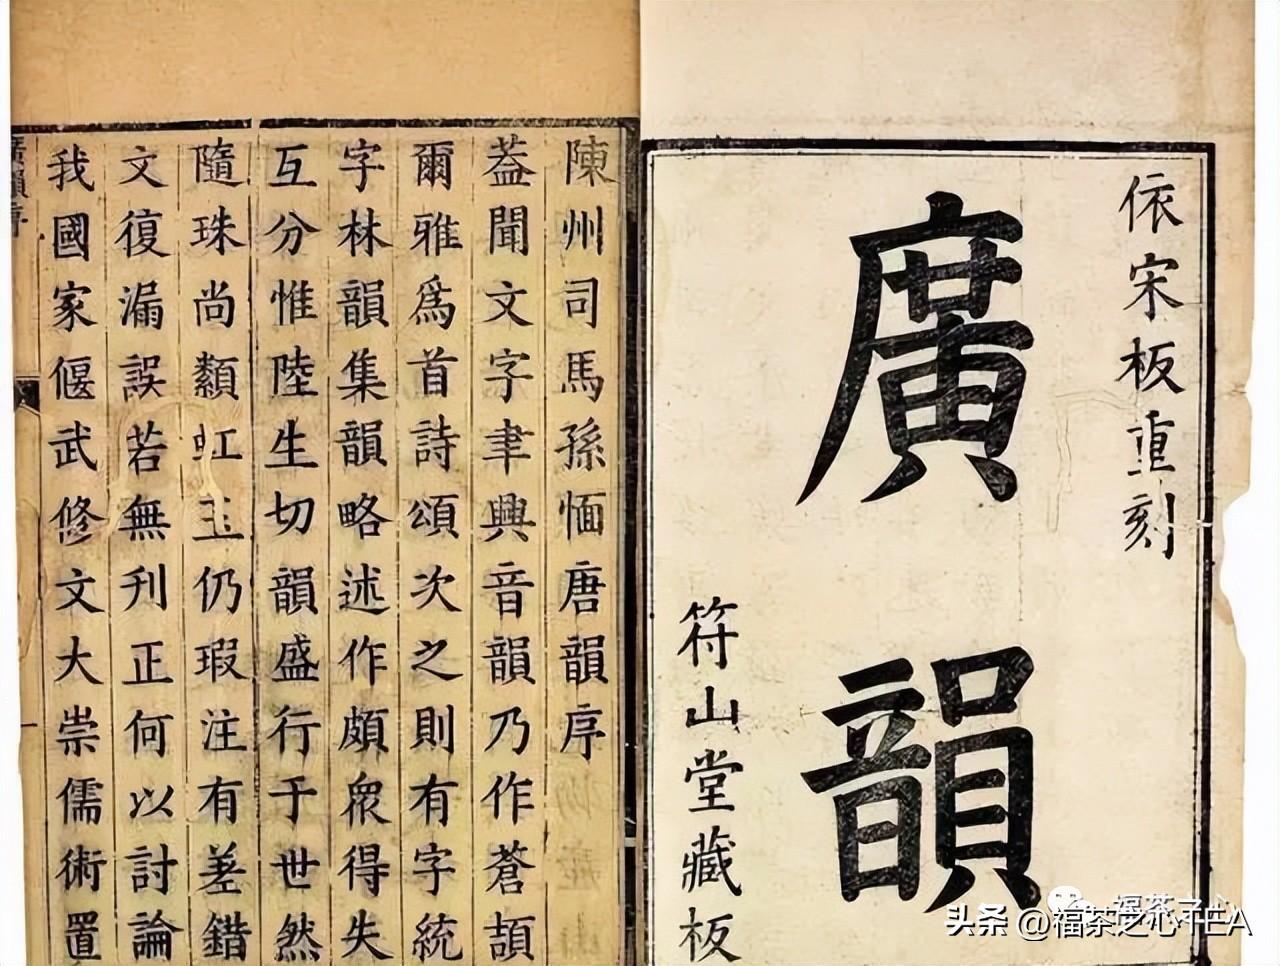 依宋板重刻
廣韻
符山堂藏板
陳州司馬孫愐唐韻序
蓋聞文字聿興音韻乃作蒼頡
爾雅爲首詩頌次之則有字統
字林韻集韻略述作頗衆得失
互分惟陸生切韻盛行于世然
隨珠尚纇虹玉仍瑕注有差錯
文復漏誤若無刊正何以討論
我國家偃武修文大崇儒術置
廣韻序
一
福茶之心
头条 @福茶之心千芒A